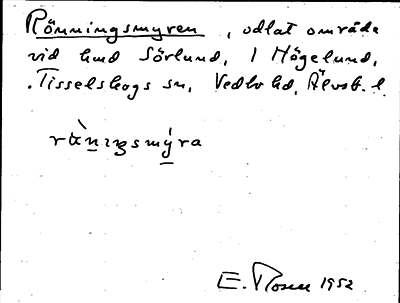 Rönningsmyren, odlat område
vid hmd Sörlund, 1 Högelund,
Tisselskogs sn, Vedbo hd, Älvsb. l.
rœ̀nıŋsmýra
E. Rosen 1952